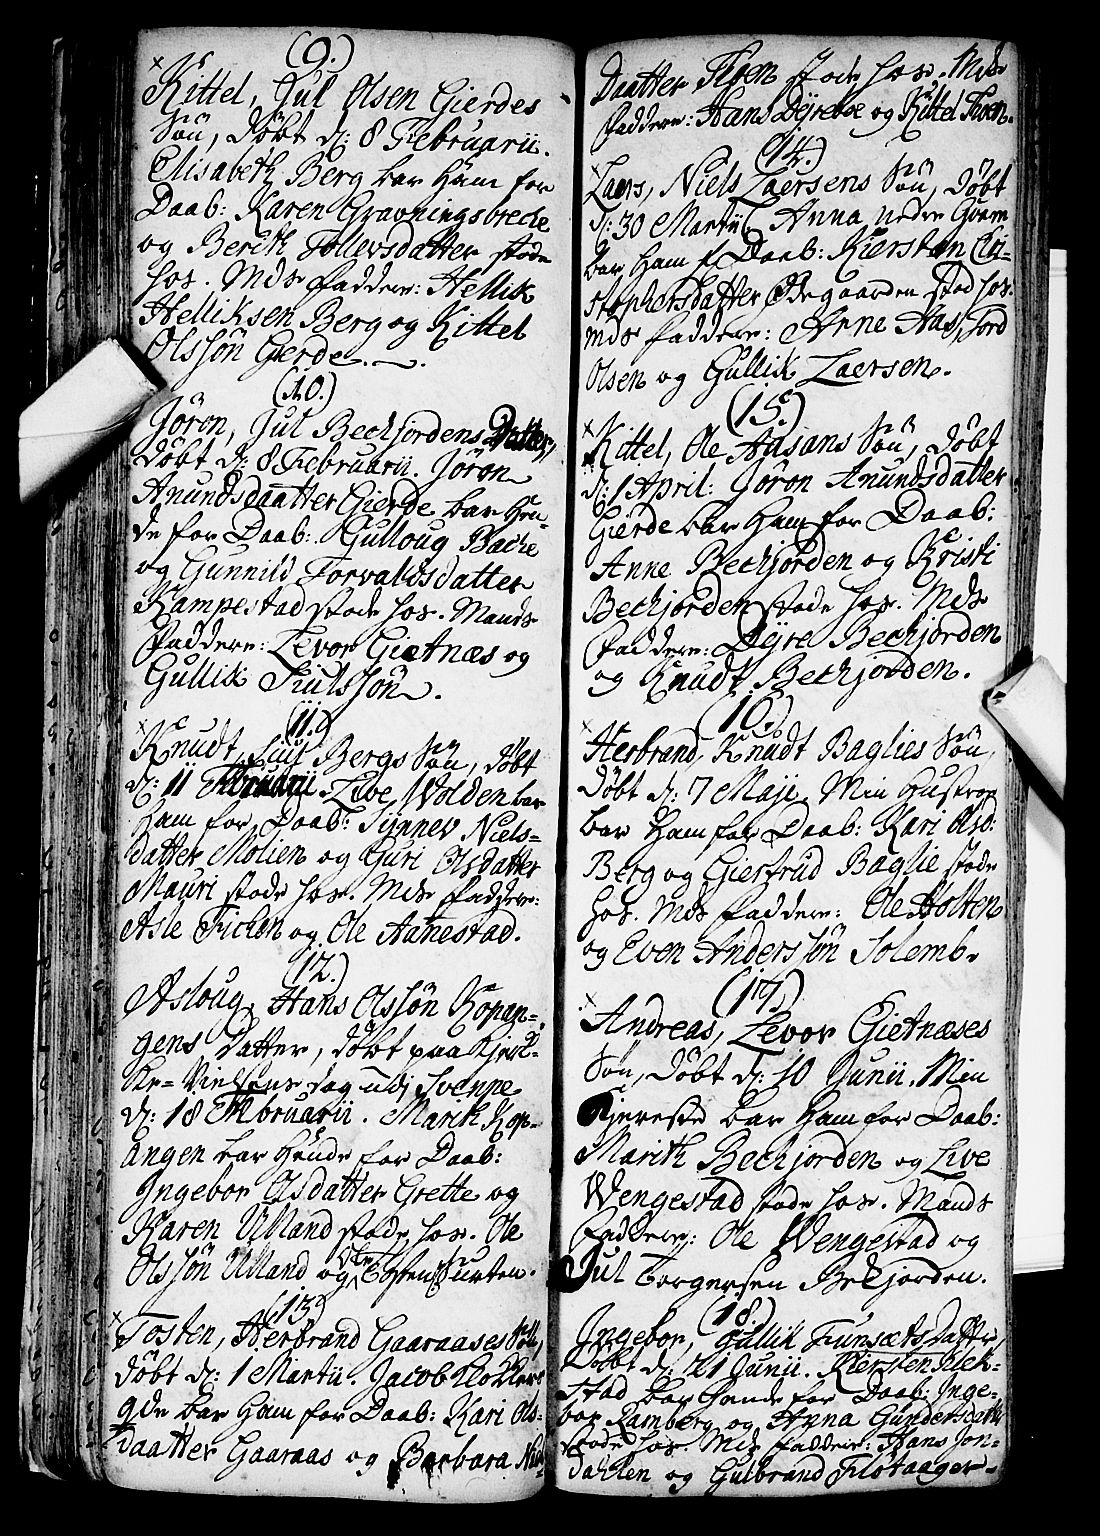 (9.)
Kittel, Jul Olsen Gierdes
Søn, døbt d: 8 Februarii.
Elisabeth Berg bar Ham for
Daab: Karen Gravningsbreche
og Berith Tollevsdatter stode
hos. Mds faddere: Hellik
Helliksen Berg og Kittel
Olssøn Gierde.
(10.)
Jøron, Jul Bechjordens Datter,
døbt d: 8 Februarii. Jøron
Anundsdaatter Gierde bar Hen-
de for Daab: Gulloug Bache
og Gunnild Torvaldsdatter
Kampestad stode hos. Mands
faddere: Levor Gietnæs og
Gullik Juulssøn.
(11.)
Knudt, Juul Bergs Søn, døbt
d: 11 Februarii. Live Wolden bar
Ham for Daab: Synnev Niels-
datter Molien og Guri Olsdatter
Mauri stode hos. Mds faddere:
Asle Ticken og Ole Aanestad.
(12.)
Asloug, Hans Olssøn Kopan-
gens Datter, døbt paa Kjerk-
ke-Vielsens dag udi Svenne
d: 18 Februarii. Marith Kop-
angen bar Hende for Daab:
Ingebor Olsdatter Grette og
Karen Ulland stode hos. Ole
Olssøn Ulland og Ole Tosten Surten.
(13)
Tosten, Herbrand Gaaraases Søn,
døbt d: 1 Martii. Jacob Klokkers
qde bar Ham for Daab: Kari Ols-
daatter Gaaraas og Barbara Niels-
daatter Moen stode hos. Mds
faddere: Hans Dyreboe og Kittel Moen.
(14.)
Laers, Niels Laersens Søn, døbt
d: 30 Martii. Anna nedre Gvarn
bar Ham f Daab: Kiersten Chri-
stophersdatter Ødegaarden stod hos.
Mds faddere: Arne Aas, Tord
Olsen og Gullik Laersen.
(15.)
Kittel, Ole Aasans Søn, døbt
d: 1 April: Jøron Anundsdatter
Gierde bar Ham for Daab:
Anne Bechjorden og Kristi
Bechjorden stode hos. Mds
faddere: Dyre Bechjorden
og Knudt Bechjorden.
(16.)
Herbrand, Knudt Baglies Søn,
døbt d: 7 Maji. Min Hustroe
bar Ham for Daab: Kari Olsd:
Berg og Giertrud Baglie stode
hos. Mds faddere: Ole Holten
og Even Anderssøn Solemb.
(17.)
Andreas, Levor Gietnæses
Søn, døbt d: 10 Junii. Min
Kjereste bar Ham for Daab:
Marith Bechjorden og Live
Wengestad stode hos. Mands
faddere: Ole Wengestad og
Jul Torgersen Bekjorden.
(18.)
Ingebor, Gullik Funsæts Datter,
døbt d: 21 Junii. Kiersten Flek-
stad bar Hende for Daab: Inge-
bor Ramberg og Anna Gundersdatter
stode hos. Mds faddere: Hans Jon-
dahlen og Gulbrand Flotaager-